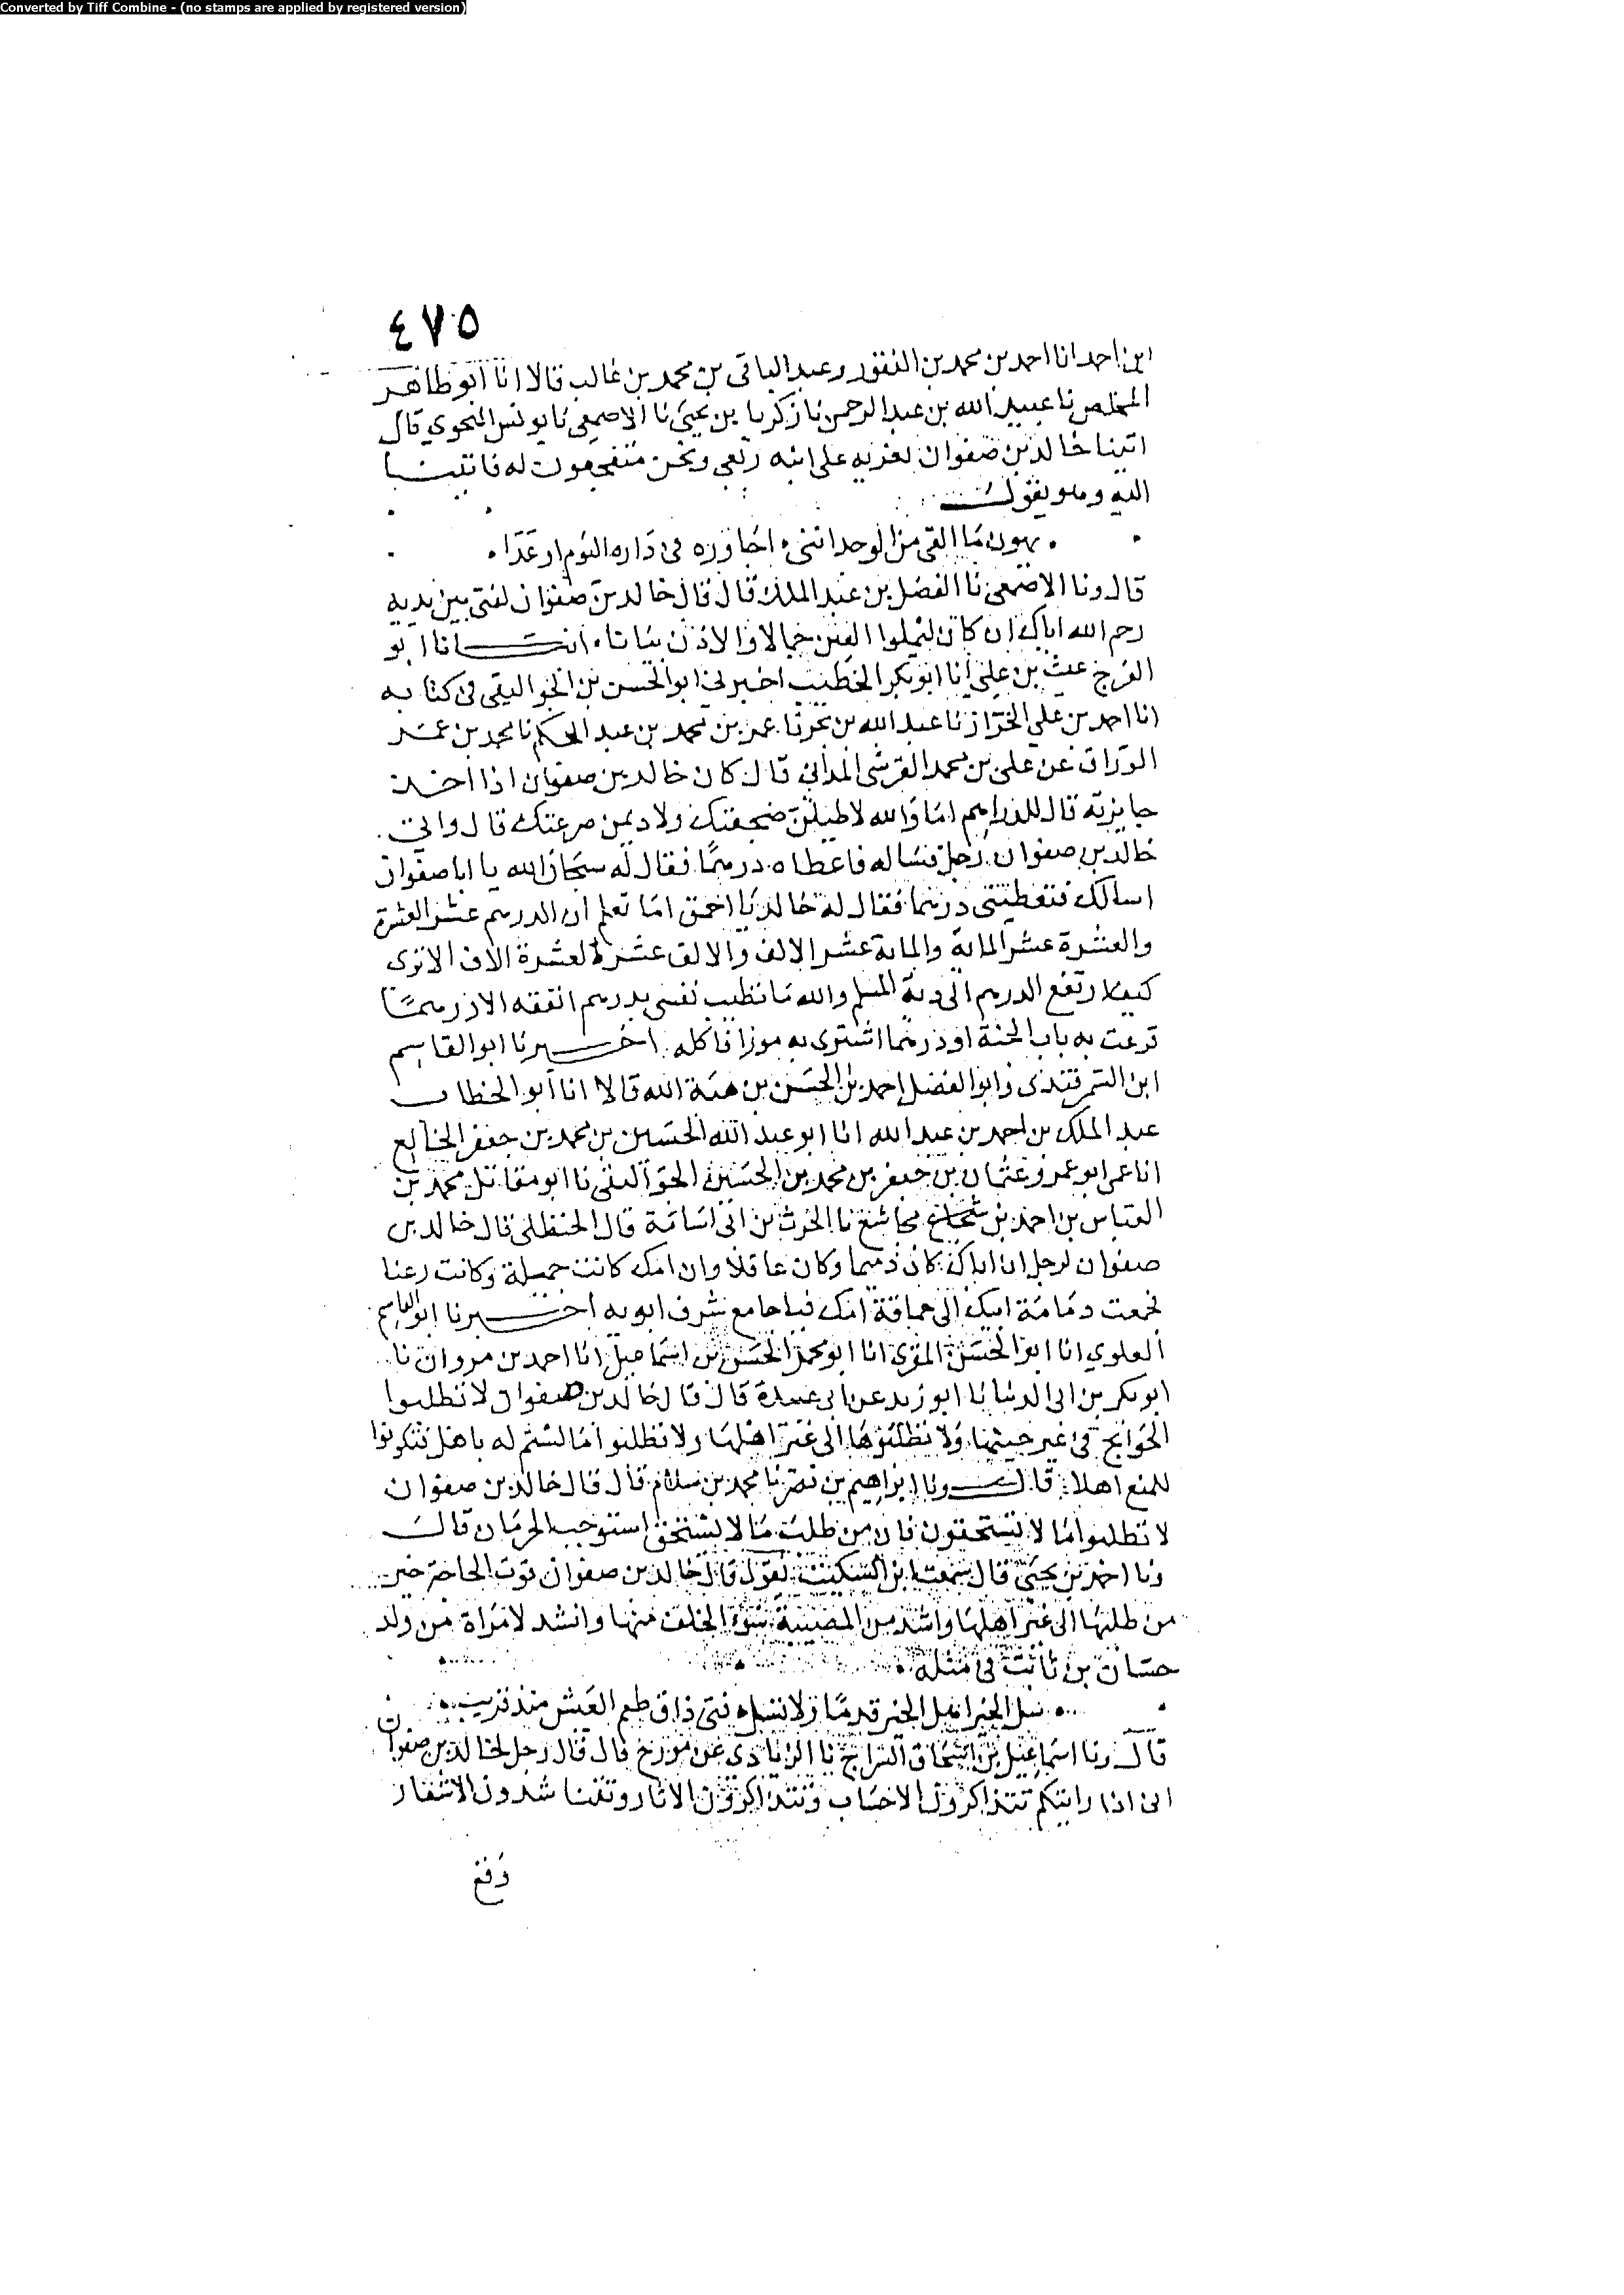 Converted by Tiff Combine - (no stamps are applied by registered version)
٤٧٥
ابن احمد انا احمد بن محمد بن النقور وعبد الباقي بن محمد بن غالب قالا انا ابو طاهر
المخلص نا عبيد الله بن عبد الرحمن نا زكريا بن يحيى نا الاصمعي نا يونس النحوي قال
اتينا خالد بن صفوان نعزيه على ابنه ربعي ونحن متفجعون له فانتهينا
اليه وهو يقول
يهون ما القى من الوجد انني اجاوره في داره اليوم او غدا
قال ونا الاصمعي نا الفضل بن عبد الملك قال قال خالد بن صفوان لفتى بين يديه
رحم الله اباك ان كان ليملوا العين جمالا والاذن بيانا انبانا ابو
الفرج غيث بن علي انا ابو بكر الخطيب اخبرني ابو الحسن بن الجواليقي في كتابه
انا احمد بن علي الخزاز نا عبد الله بن بحر نا عمر بن محمد بن عبد الحكم نا محمد بن عمر
الوراق عن علي بن محمد القرشي المدايني قال كان خالد بن صفوان اذا اخذ
جايزته قال للدراهم اما والله لاطيلن ضجعتك ولاديمن صرعتك قال واتى
خالد بن صفوان رجل فساله فاعطاه درهما فقال له سبحان الله يا ابا صفوان
اسالك فتعطيني درهما فقال له خالد يا احمق اما تعلم ان الدرهم عشر العشرة
والعشرة عشر الماية والماية عشر الالف والالف عشر العشرة الاف الا ترى
كيف ارتفع الدرهم الى دية المسلم والله ما تطيب نفسي بدرهم انفقه الا درهما
قرعت به باب الجنة او درهما اشتري به موزا فاكله اخبرنا ابو القاسم
ابن السمرقندي وابو الفضل احمد بن الحسن بن هبة الله قالا انا ابو الخطاب
عبد الملك بن احمد بن عبد الله انا ابو عبد الله الحسين بن محمد بن جعفر الخالع
انا عمي ابو عمرو عثمان بن جعفر بن محمد بن الحسين الجواليقي نا ابو مقاتل محمد بن
العباس بن احمد بن مجاشع نا الحرث بن ابي اسامة قال الحنظلي قال خالد بن
صفوان لرجل ان اباك كان دميما وكان عاقلا وان امك كانت جميلة وكانت رعنا
فجمعت دمامة ابيك الى حماقة امك فيا جامع شر ابويه اخبرنا ابو القاسم
العلوي انا ابو الحسن المقرئ انا ابو محمد الحسن بن اسماعيل انا احمد بن مروان نا
ابو بكر بن ابي الدنيا نا ابو زيد عن ابي عبيدة قال قال خالد بن صفوان لا تطلبوا
الحوايج في غير حينها ولا تطلبوها الى غير اهلها ولا تطلبوا ما لستم له باهل فتكونوا
للمنع اهلا قال ونا ابراهيم بن نصر نا محمد بن سلام قال قال خالد بن صفوان
لا تطلبوا ما لا تستحقون فان من طلب ما لا يستحق استوجب الحرمان قال
ونا احمد بن يحيى قال سمعت ابن السكيت يقول قال خالد بن صفوان فوت الحاجة خير
من طلبها الى غير اهلها واشد من المصيبة سوء الخلف منها وانشد لامراة من ولد
حسان بن ثابت في مثله
سل الخير اهل الخير قدما ولا تسل فتى ذاق طعم العيش منذ قريب
قال ونا اسماعيل بن اسحاق السراج نا الزيادي عن مورخ قال قال رجل لخالد بن صفوان
اني اذا رايتكم تتذاكرون الاحساب وتتذاكرون الاثار وتتناشدون الاشعار
وقع